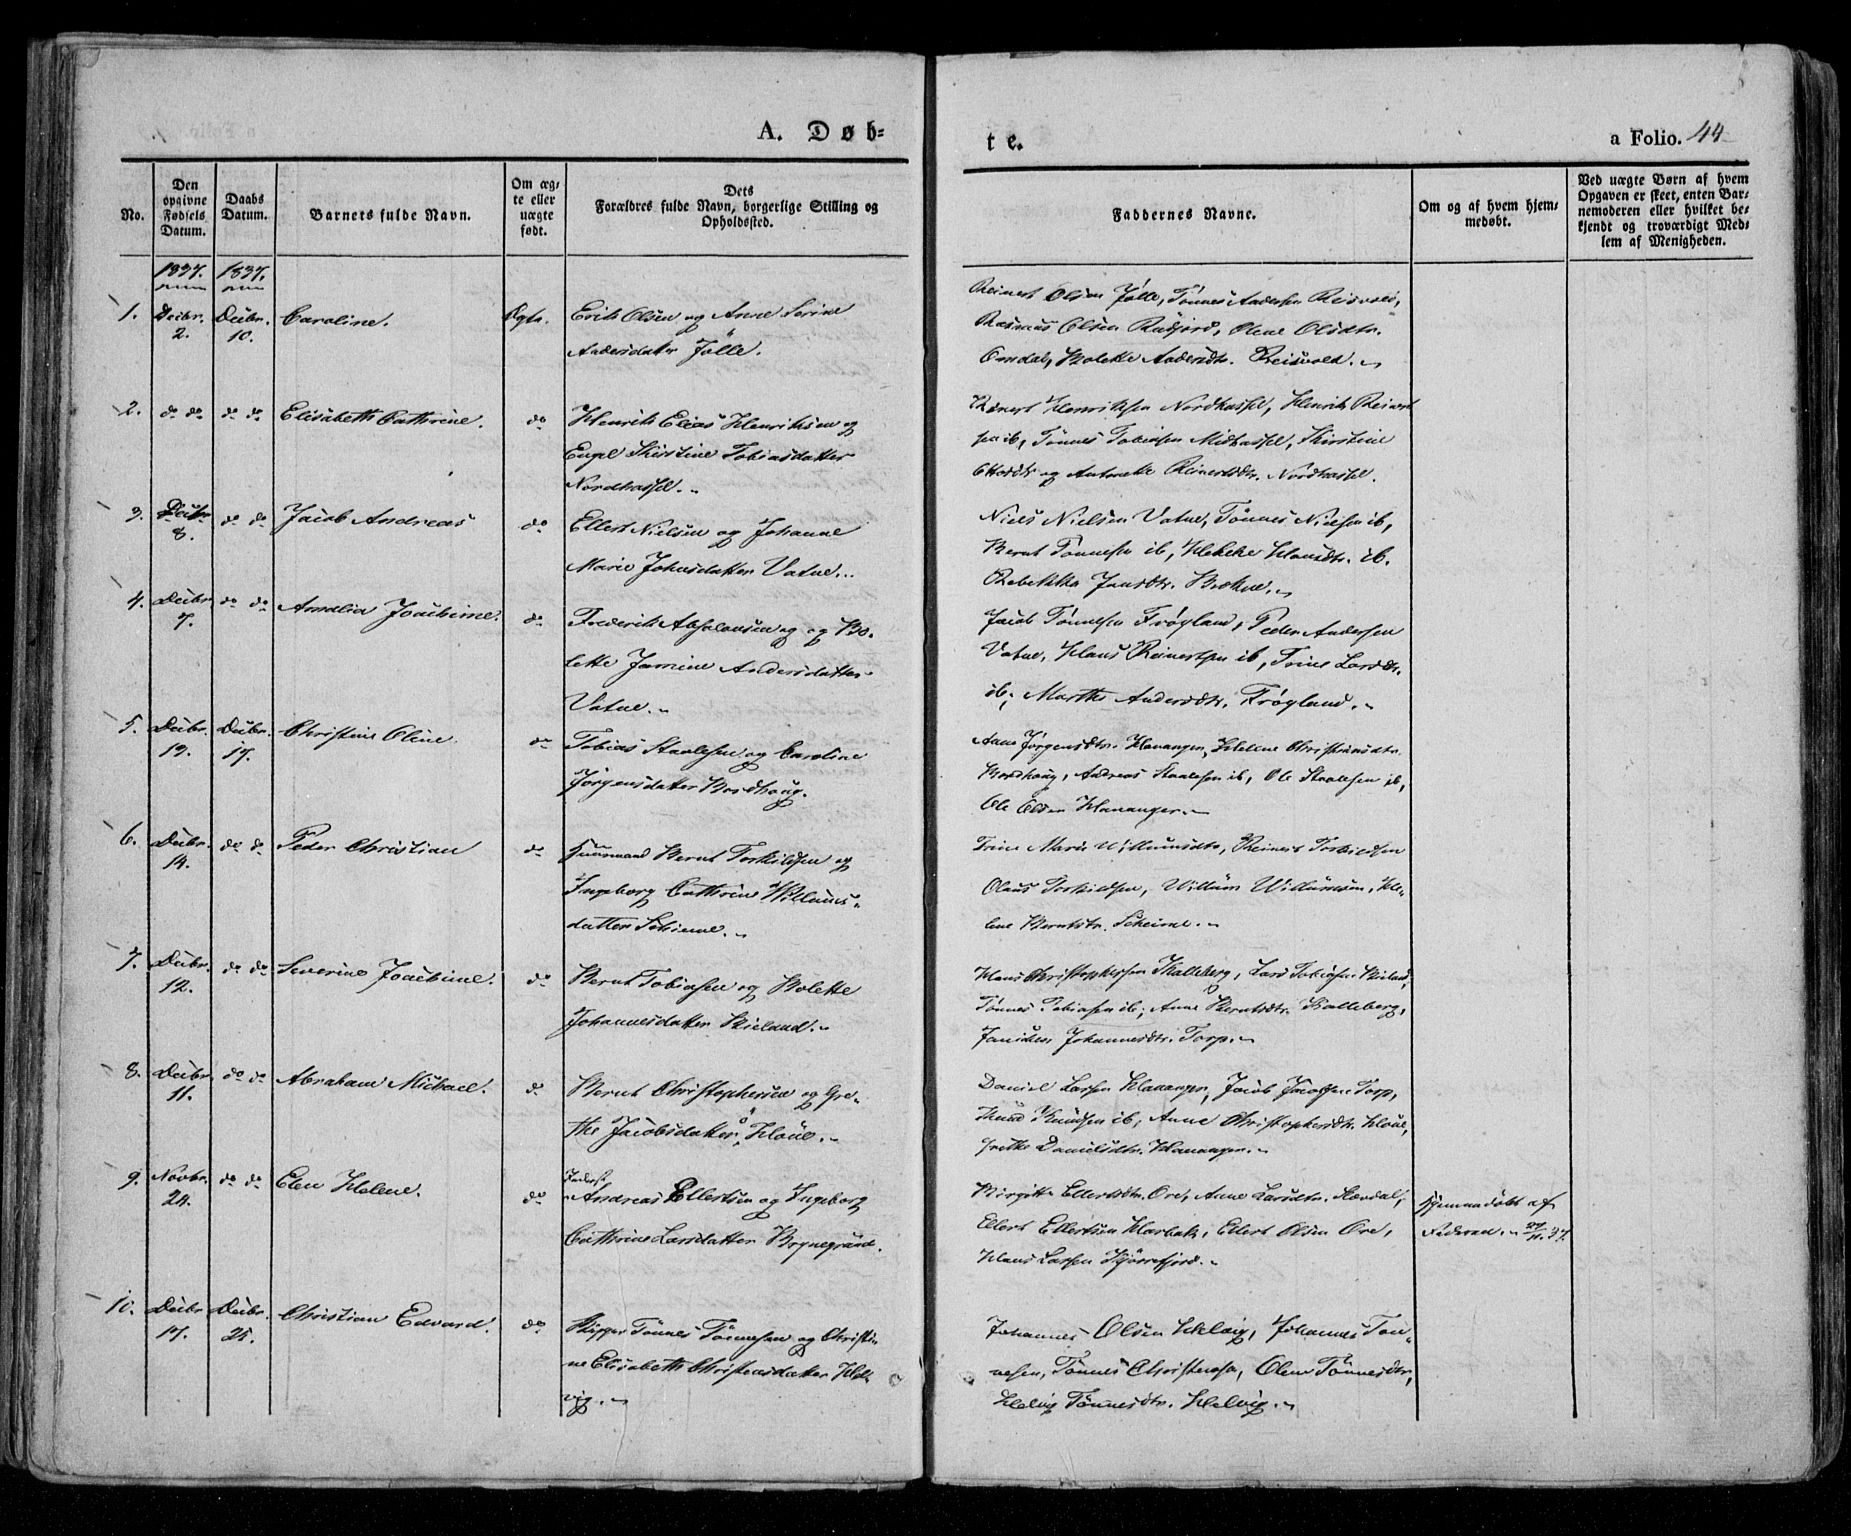 A. Døb-
te.
a Folio. 44
No.
Den opgivne Fødsels Datum.
Daabs Datum.
Barnets fulde Navn.
Om ægte eller uægte født.
Dets Forældres fulde Navn, borgerlige Stilling og Opholdssted.
Faddernes Navne.
Om og af hvem hjemmedøbt.
Ved uægte Børn af hvem Opgaven er skeet, enten Barnemoderen eller hvilket bekjendt og troværdigt Medlem af Menigheden.
1837. 1837.
1. Decbr. 2. Decbr. 10. Caroline. Ægte.
Erik Olsen og Anne Serine
Andersdatter Jølle.
Reinert Olsen Jølle, Tönnes Andersen Reisvold,
Rasmus Olsen Rudjord, Olene Olsdtr.
Omdal, Bolette Andersdtr. Reisvold.
2. do do do do Elisabeth Cathrine. do
Henrik Elias Henriksen og
Engel Kirstine Tobiasdatter
Nordhassel.
Reinert Henriksen Nordhassel, Henrik Reinert
sen ib, Tönnes Tobiasen Midhassel, Kirstine
og Reinertsdtr. Nordhassel.
3. Decbr. 8. do do Jacob Andreas do
Ellert Nielsen og Johanne
Marie Johnsdatter Vatne.
Niels Nielsen Vatne, Tönnes Nielsen ib,
Bernt Tönnesen ib, Hansdtr. ib.
Rebekka Jansdtr.
4. Decbr. 7. do do Amalia Joachime. do
Frederik Absalonsen og og Bo-
lette Jamine Andersdatter
Vatne.
Jacob Tønnesen Frøyland, Peder Andersen
Vatne, Klaus Reinertsen ib, Trine Larsdtr.
ib, Marthe Andersdtr. Frøyland.
5. Decbr. 19. Decbr. 17. Christine Oline. do
Tobias Staalesen og Caroline
Jörgensdatter Bordhoug.
Anne Jørgensdtr. Hananger, Helene Christiansdtr.
Bordhoug, Andreas Staalesen ib, Ole Staalesen ib,
Ole Olsen Hananger.
6. Decbr. 14. do do Peder Christian do
Huusmand Bernt Torkildsen og
Ingeborg Cathrine Willums-
datter Scheime.
Trine Marie Willumsdtr, Reinert Torkildsen
Olaus Torkildsen, Willum Willumsen, He-
lene Berntsdtr. Scheime.
7. Decbr. 12. do do Severine Joachime. do
Bernt Tobiasen og Bolette
Johannesdatter Skieland.
Hans Christophersen Kalleberg, Lars Tobiasen Skieland,
Tönnes Tobiasen ib, Anne Berntsdtr. Kalleberg,
Johannesdtr. Torp.
8. Decbr. 11. do do Abraham Michael. do
Bernt Christophersen og Gre-
the Jacobsdatter Kloue.
Daniel Larsen Hananger, Jacob Jacobsen Torp,
Knud Knudsen ib, Anne Christophersdtr. Kloue,
Grethe Danielsdtr. Hananger.
9. Novbr. 24. do do Elen Helene. do
Andreas Ellertsen og Ingeborg
Cathrine Larsdatter Brynegrund.
Birgitte Ellertsdtr. Ore, Anne Larsdtr.
Ellert Ellertsen Harbak, Ellert Olsen Ore,
Hans Larsen Kjørrefjord.
Hjemmedøbt af
Faderen. 27/11 37.
10. Decbr. 17. Decbr. 25. Christian Edvard. do
Skipper Tönnes Tönnesen og Christi-
ne Elisabeth Christensdatter Hel-
vig.
Johannes Olsen Helvig, Johannes Tön-
nesen, Tönnes Christensen, Olene Tönnesdtr,
Helvig Tönnesdtr. Helvig.